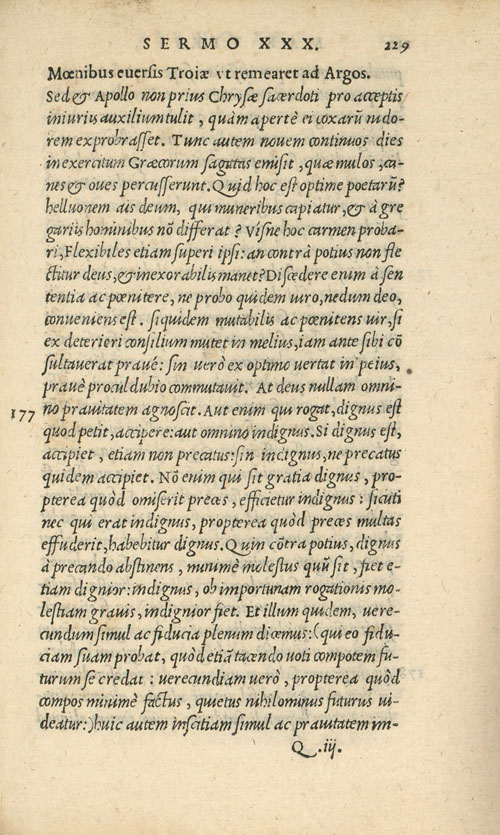 SERMO XXX. 229
Mœnibus euersis Troiæ vt remearet ad Argos.
Sed & Apollo non prius Chrysæ sacerdoti pro acceptis
iniuriis auxilium tulit, quàm apertè ei coxarũ nido-
rem exprobrasset. Tunc autem nouem continuos dies
in exercitum Græcorum sagittas emisit, quæ mulos, ca-
nes & oues percusserunt. Quid hoc est optime poetarũ?
helluonem ais deum, qui muneribus capiatur, & à gre
gariis hominibus nõ differat? Visne hoc carmen proba-
ri, Flexibiles etiam superi ipsi: an contrà potius non fle
ctitur deus, & inexorabilis manet? Discedere enim à sen
tentia ac pœnitere, ne probo quidem uiro, nedum deo,
conueniens est. siquidem mutabilis ac pœnitens uir, si
ex deterieri consilium mutet in melius, iam ante sibi cõ
sultauerat prauè: sin uerò ex optimo vertat in peius,
prauè procul dubio commutauit. At deus nullam omni-
177 no prauitatem agnoscit. Aut enim qui rogat, dignus est
quod petit, accipere: aut omnino indignus. Si dignus est,
accipiet, etiam non precatus: sin indignus, ne precatus
quidem accipiet. Nõ enim qui sit gratia dignus, pro-
pterea quòd omiserit preces, efficietur indignus: sicuti
nec qui erat indignus, propterea quòd preces multas
effuderit, habebitur dignus. Quin cõtra potius, dignus
à precando abstinens, minimè molestus quũ sit, fiet e-
tiam dignior: indignus, ob importunam rogationis mo-
lestiam grauis, indignior fiet. Et illum quidem, uere-
cundum simul ac fiducia plenum dicemus: (qui eo fidu-
ciam suam probat, quòd etiã tacendo uoti compotem fu-
turum se credat: uerecundiam uerò, propterea quòd
compos minimè factus, quietus nihilominus futurus ui-
deatur:) huic autem inscitiam simul ac prauitatem im-
Q.iij.